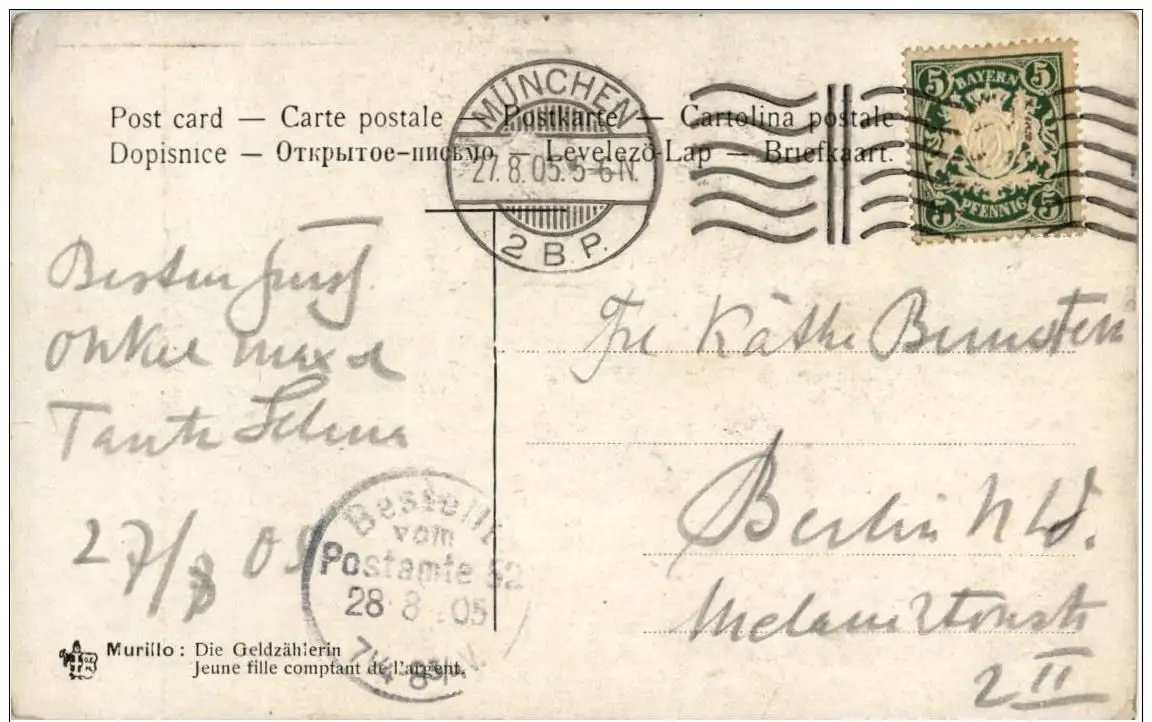 Post card — Carte postale — Postkarte — Cartolina postale
Dopisnice — Открытое-письмо — Levelező-Lap — Briefkaart.
MÜNCHEN
27.8.05. 5-6 N.
2 B.P.
5 BAYERN 5
5 PFENNIG 5
Besten
Onkel Max &
Tante Selma
27/8 05
Frl Käthe Bernstein
Berlin NW.
2 II
Bestellt
vom
Postamte 52
28 8 .05
Murillo: Die Geldzählerin
Jeune fille comptant de l'argent.